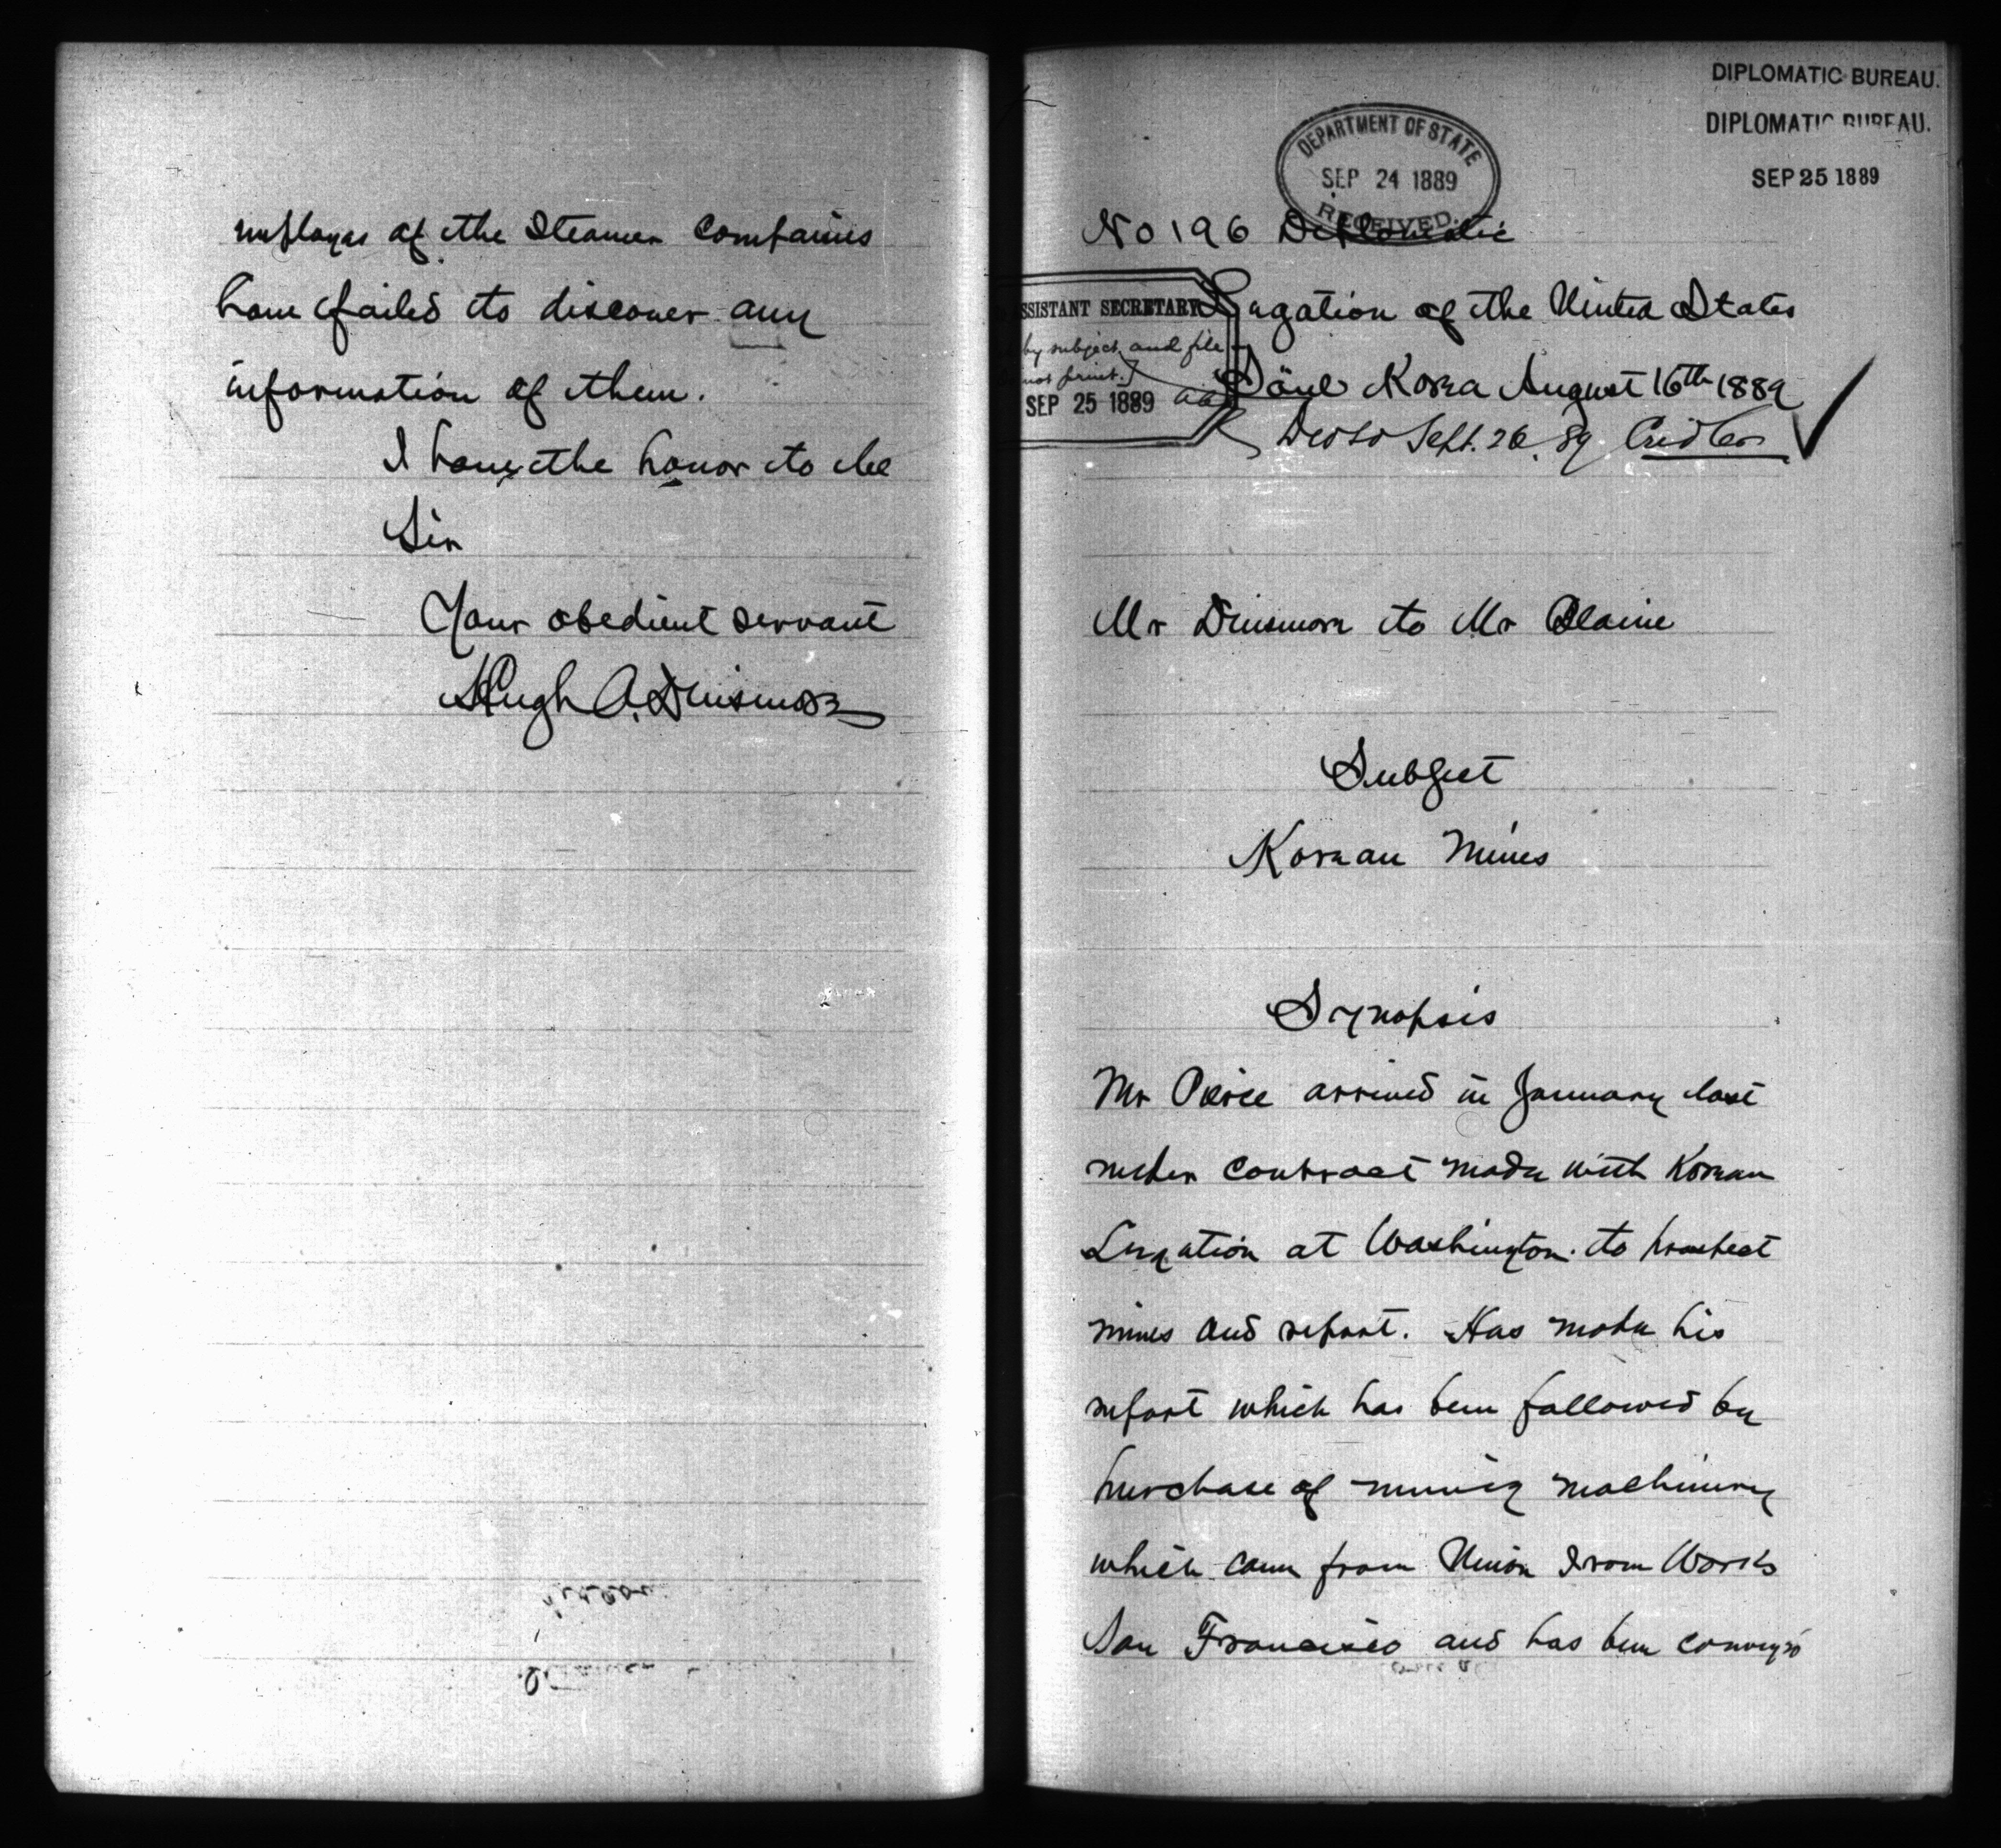 employes of the Steamer Companies
have failed to discover any
information of them.
I have the honor to be
Sir
Your obedient servant
Hugh A. Dinsmore
DIPLOMATIC BUREAU.
DIPLOMATIC BUREAU.
SEP 25 1889
DEPARTMENT OF STATE
SEP 24 1889
RECEIVED.
No 196 Diplomatic
Legation of the United States
SSISTANT SECRETARY
by subject and file
not print.
SEP 25 1889
Söul Korea August 16th 1889
Sept. 26, 89 Cridler
Mr Dinsmore to Mr Blaine
Subject
Korean Mines
Synopsis
Mr Pierce arrived in January last
under contract made with Korean
Legation at Washington to prospect
mines and report. Has made his
report which has been followed by
purchase of mining machinery
which came from Union Iron Works
San Francisco and has been conveyed